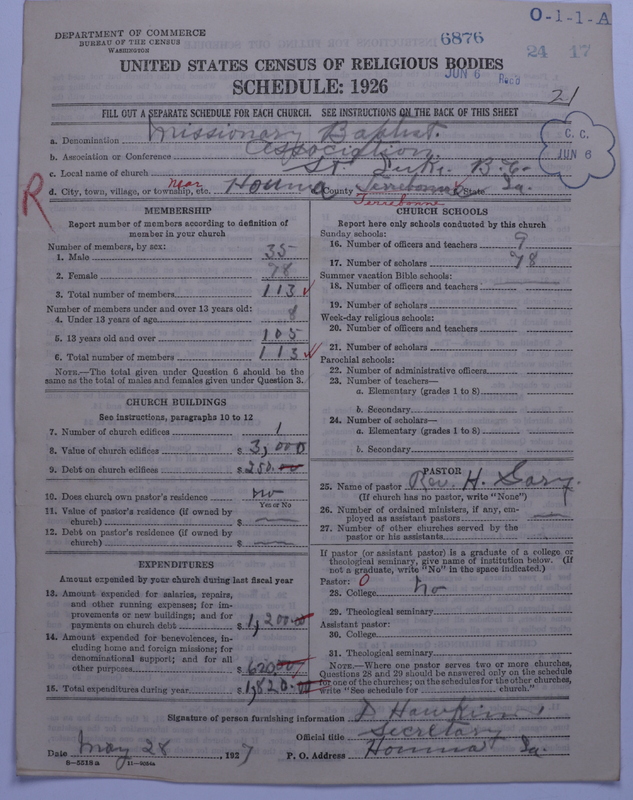 DEPARTMENT OF COMMERCE
BUREAU OF THE CENSUS
WASHINGTON
6876
O-1-1-A
24 17
UNITED STATES CENSUS OF RELIGIOUS BODIES
JUN 6 Recd
SCHEDULE: 1926
21
FILL OUT A SEPARATE SCHEDULE FOR EACH CHURCH. SEE INSTRUCTIONS ON THE BACK OF THIS SHEET
C. C. JUN 6
a. Denomination Missionary Baptist.
b. Association or Conference Association
c. Local name of church St. Luke B. C.
d. City, town, village, or township, etc. near Houma County Terrebonne State La.
Terrebonne
R
MEMBERSHIP
Report number of members according to definition of member in your church
Number of members, by sex:
1. Male 35
2. Female 78
3. Total number of members 113
Number of members under and over 13 years old:
4. Under 13 years of age 8
5. 13 years old and over 105
6. Total number of members 113
NOTE.—The total given under Question 6 should be the same as the total of males and females given under Question 3.
CHURCH BUILDINGS
See instructions, paragraphs 10 to 12
7. Number of church edifices 1
8. Value of church edifices $ 3,000
9. Debt on church edifices $ 250.00
10. Does church own pastor's residence no
Yes or No
11. Value of pastor's residence (if owned by church) $
12. Debt on pastor's residence (if owned by church) $
EXPENDITURES
Amount expended by your church during last fiscal year
13. Amount expended for salaries, repairs, and other running expenses; for improvements or new buildings; and for payments on church debt $ 1,200.00
14. Amount expended for benevolences, including home and foreign missions; for denominational support; and for all other purposes $ 620.00
15. Total expenditures during year $ 1,820.00
CHURCH SCHOOLS
Report here only schools conducted by this church
Sunday schools:
16. Number of officers and teachers 9
17. Number of scholars 98
Summer vacation Bible schools:
18. Number of officers and teachers
19. Number of scholars
Week-day religious schools:
20. Number of officers and teachers
21. Number of scholars
Parochial schools:
22. Number of administrative officers
23. Number of teachers—
a. Elementary (grades 1 to 8)
b. Secondary
24. Number of scholars—
a. Elementary (grades 1 to 8)
b. Secondary
PASTOR
25. Name of pastor Rev. H. Gary.
(If church has no pastor, write "None")
26. Number of ordained ministers, if any, employed as assistant pastors
27. Number of other churches served by the pastor or his assistants
If pastor (or assistant pastor) is a graduate of a college or theological seminary, give name of institution below. (If not a graduate, write "No" in the space indicated.)
Pastor: 0
28. College no
29. Theological seminary
Assistant pastor:
30. College
31. Theological seminary
NOTE.—Where one pastor serves two or more churches, Questions 28 and 29 should be answered only on the schedule for one of the churches; on the schedules for the other churches, write "See schedule for church."
Signature of person furnishing information D Hawkins
Official title Secretary
Date May 28, 1927 P. O. Address Houma La.
8-5518a 11-8024a